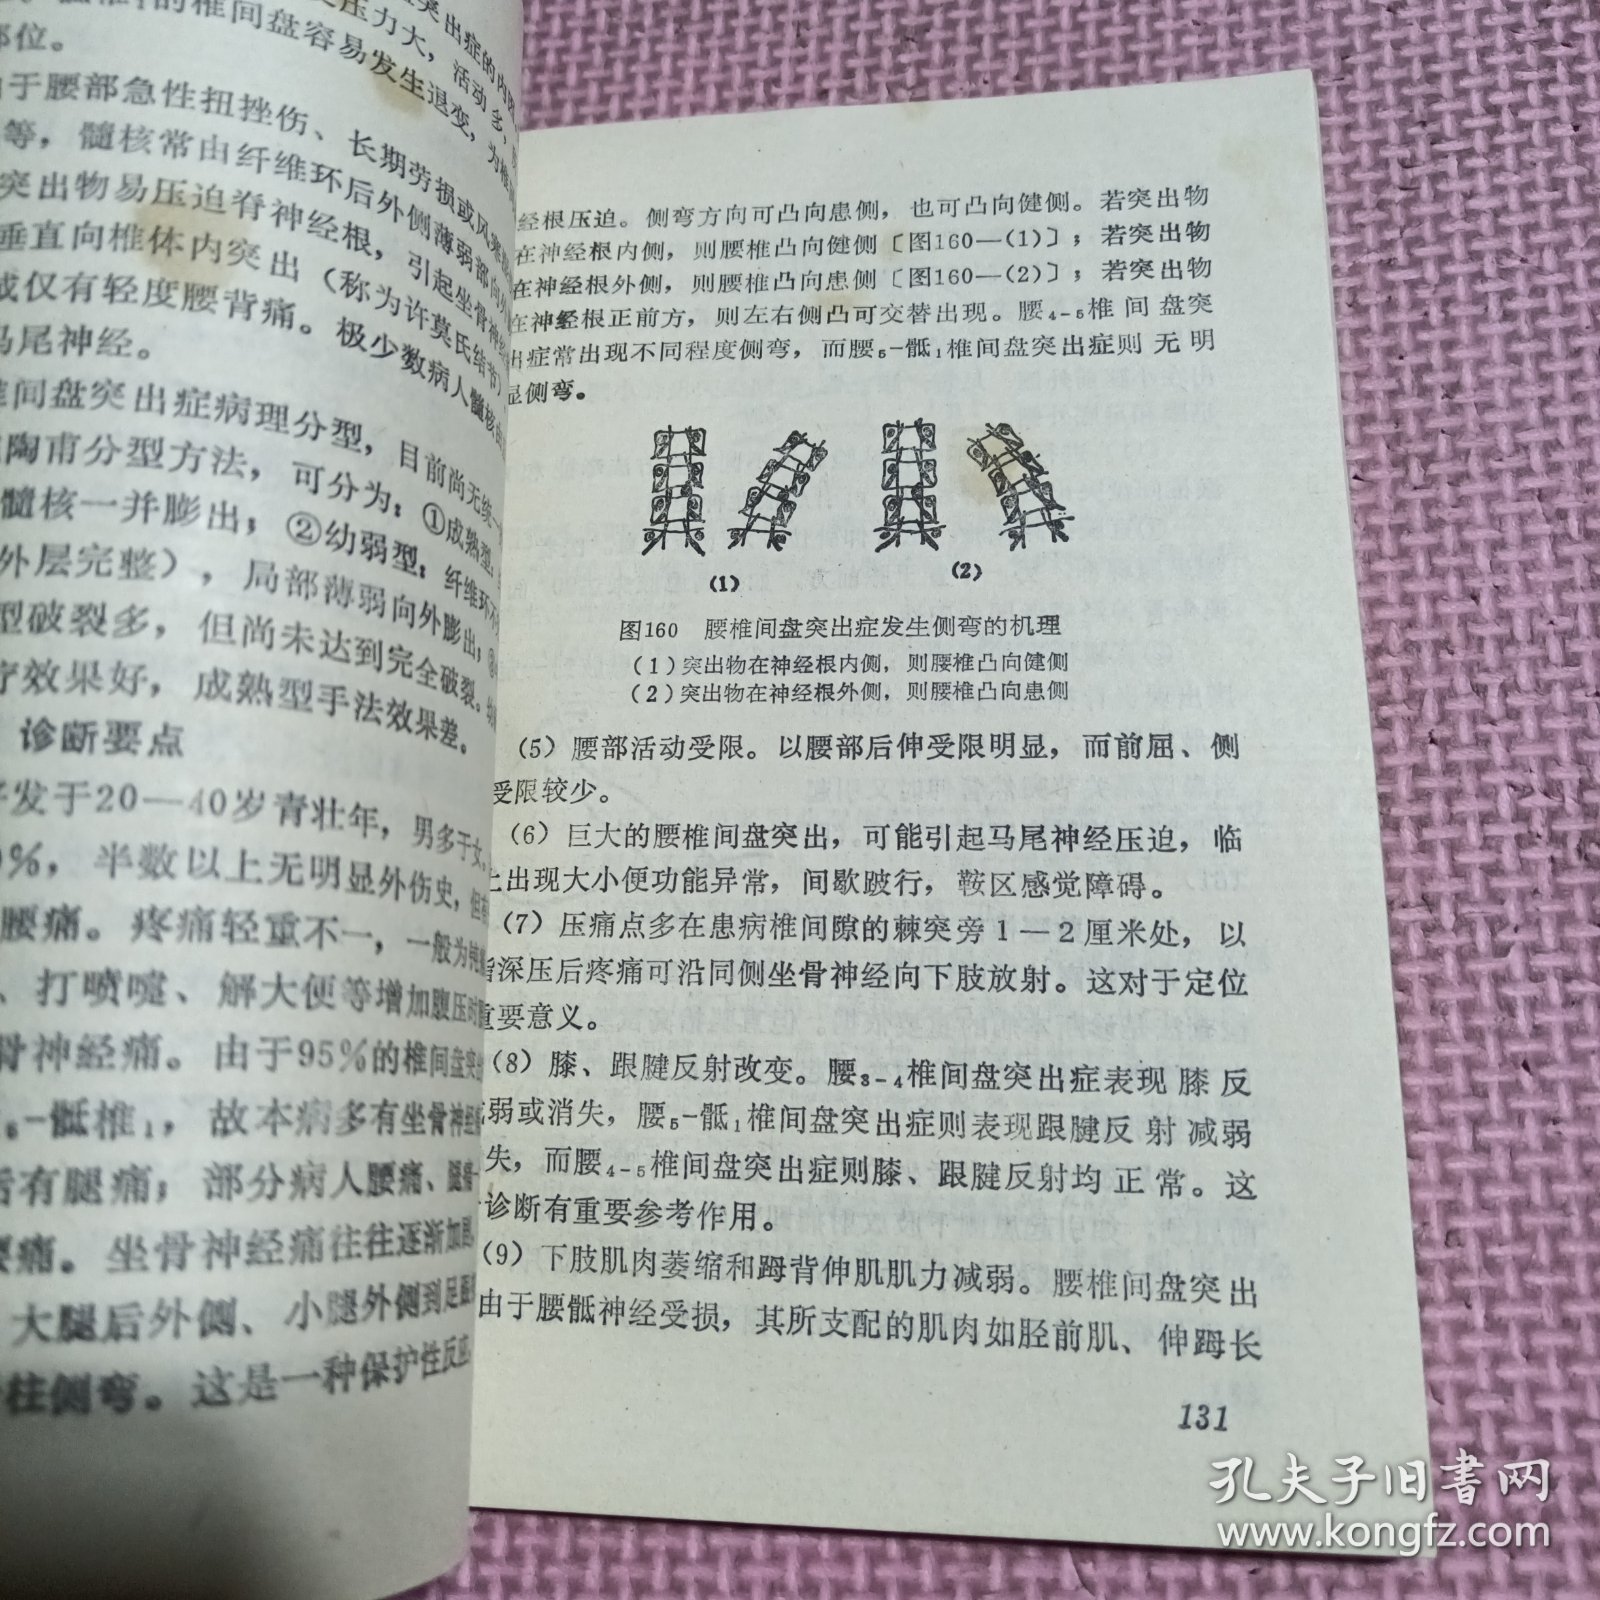 突出症的内因
压力大，活动多，
的椎间盘容易发生退变，为椎
部位。
于腰部急性扭挫伤、长期劳损或风寒
等，髓核常由纤维环后外侧薄弱部向外
突出物易压迫脊神经根，引起坐骨神经
垂直向椎体内突出（称为许莫氏结节）
或仅有轻度腰背痛。极少数病人髓核由
马尾神经。
椎间盘突出症病理分型，目前尚无统一
陶甫分型方法，可分为：①成熟型：
髓核一并膨出；②幼弱型：纤维环不
外层完整），局部薄弱向外膨出；
型破裂多，但尚未达到完全破裂。
疗效果好，成熟型手法效果差。
诊断要点
好发于20—40岁青壮年，男多于女，
%，半数以上无明显外伤史，但有
腰痛。疼痛轻重不一，一般为钝
、打喷嚏、解大便等增加腹压时
骨神经痛。由于95%的椎间盘突
₅-骶椎₁，故本病多有坐骨神经
后有腿痛；部分病人腰痛、腿
腰痛。坐骨神经痛往往逐渐加
大腿后外侧、小腿外侧到足
柱侧弯。这是一种保护性反应，
经根压迫。侧弯方向可凸向患侧，也可凸向健侧。若突出物
在神经根内侧，则腰椎凸向健侧〔图160—(1)〕；若突出物
在神经根外侧，则腰椎凸向患侧〔图160—(2)〕；若突出物
在神经根正前方，则左右侧凸可交替出现。腰₄₋₅椎间盘突
出症常出现不同程度侧弯，而腰₅-骶₁椎间盘突出症则无明
显侧弯。
(1)
(2)
图160　腰椎间盘突出症发生侧弯的机理
（1）突出物在神经根内侧，则腰椎凸向健侧
（2）突出物在神经根外侧，则腰椎凸向患侧
（5）腰部活动受限。以腰部后伸受限明显，而前屈、侧
受限较少。
（6）巨大的腰椎间盘突出，可能引起马尾神经压迫，临
上出现大小便功能异常，间歇跛行，鞍区感觉障碍。
（7）压痛点多在患病椎间隙的棘突旁1—2厘米处，以
指深压后疼痛可沿同侧坐骨神经向下肢放射。这对于定位
重要意义。
（8）膝、跟腱反射改变。腰₃₋₄椎间盘突出症表现膝反
弱或消失，腰₅-骶₁椎间盘突出症则表现跟腱反射减弱
失，而腰₄₋₅椎间盘突出症则膝、跟腱反射均正常。这
诊断有重要参考作用。
（9）下肢肌肉萎缩和踇背伸肌肌力减弱。腰椎间盘突出
由于腰骶神经受损，其所支配的肌肉如胫前肌、伸踇长
131
孔夫子旧书网
www.kongfz.com